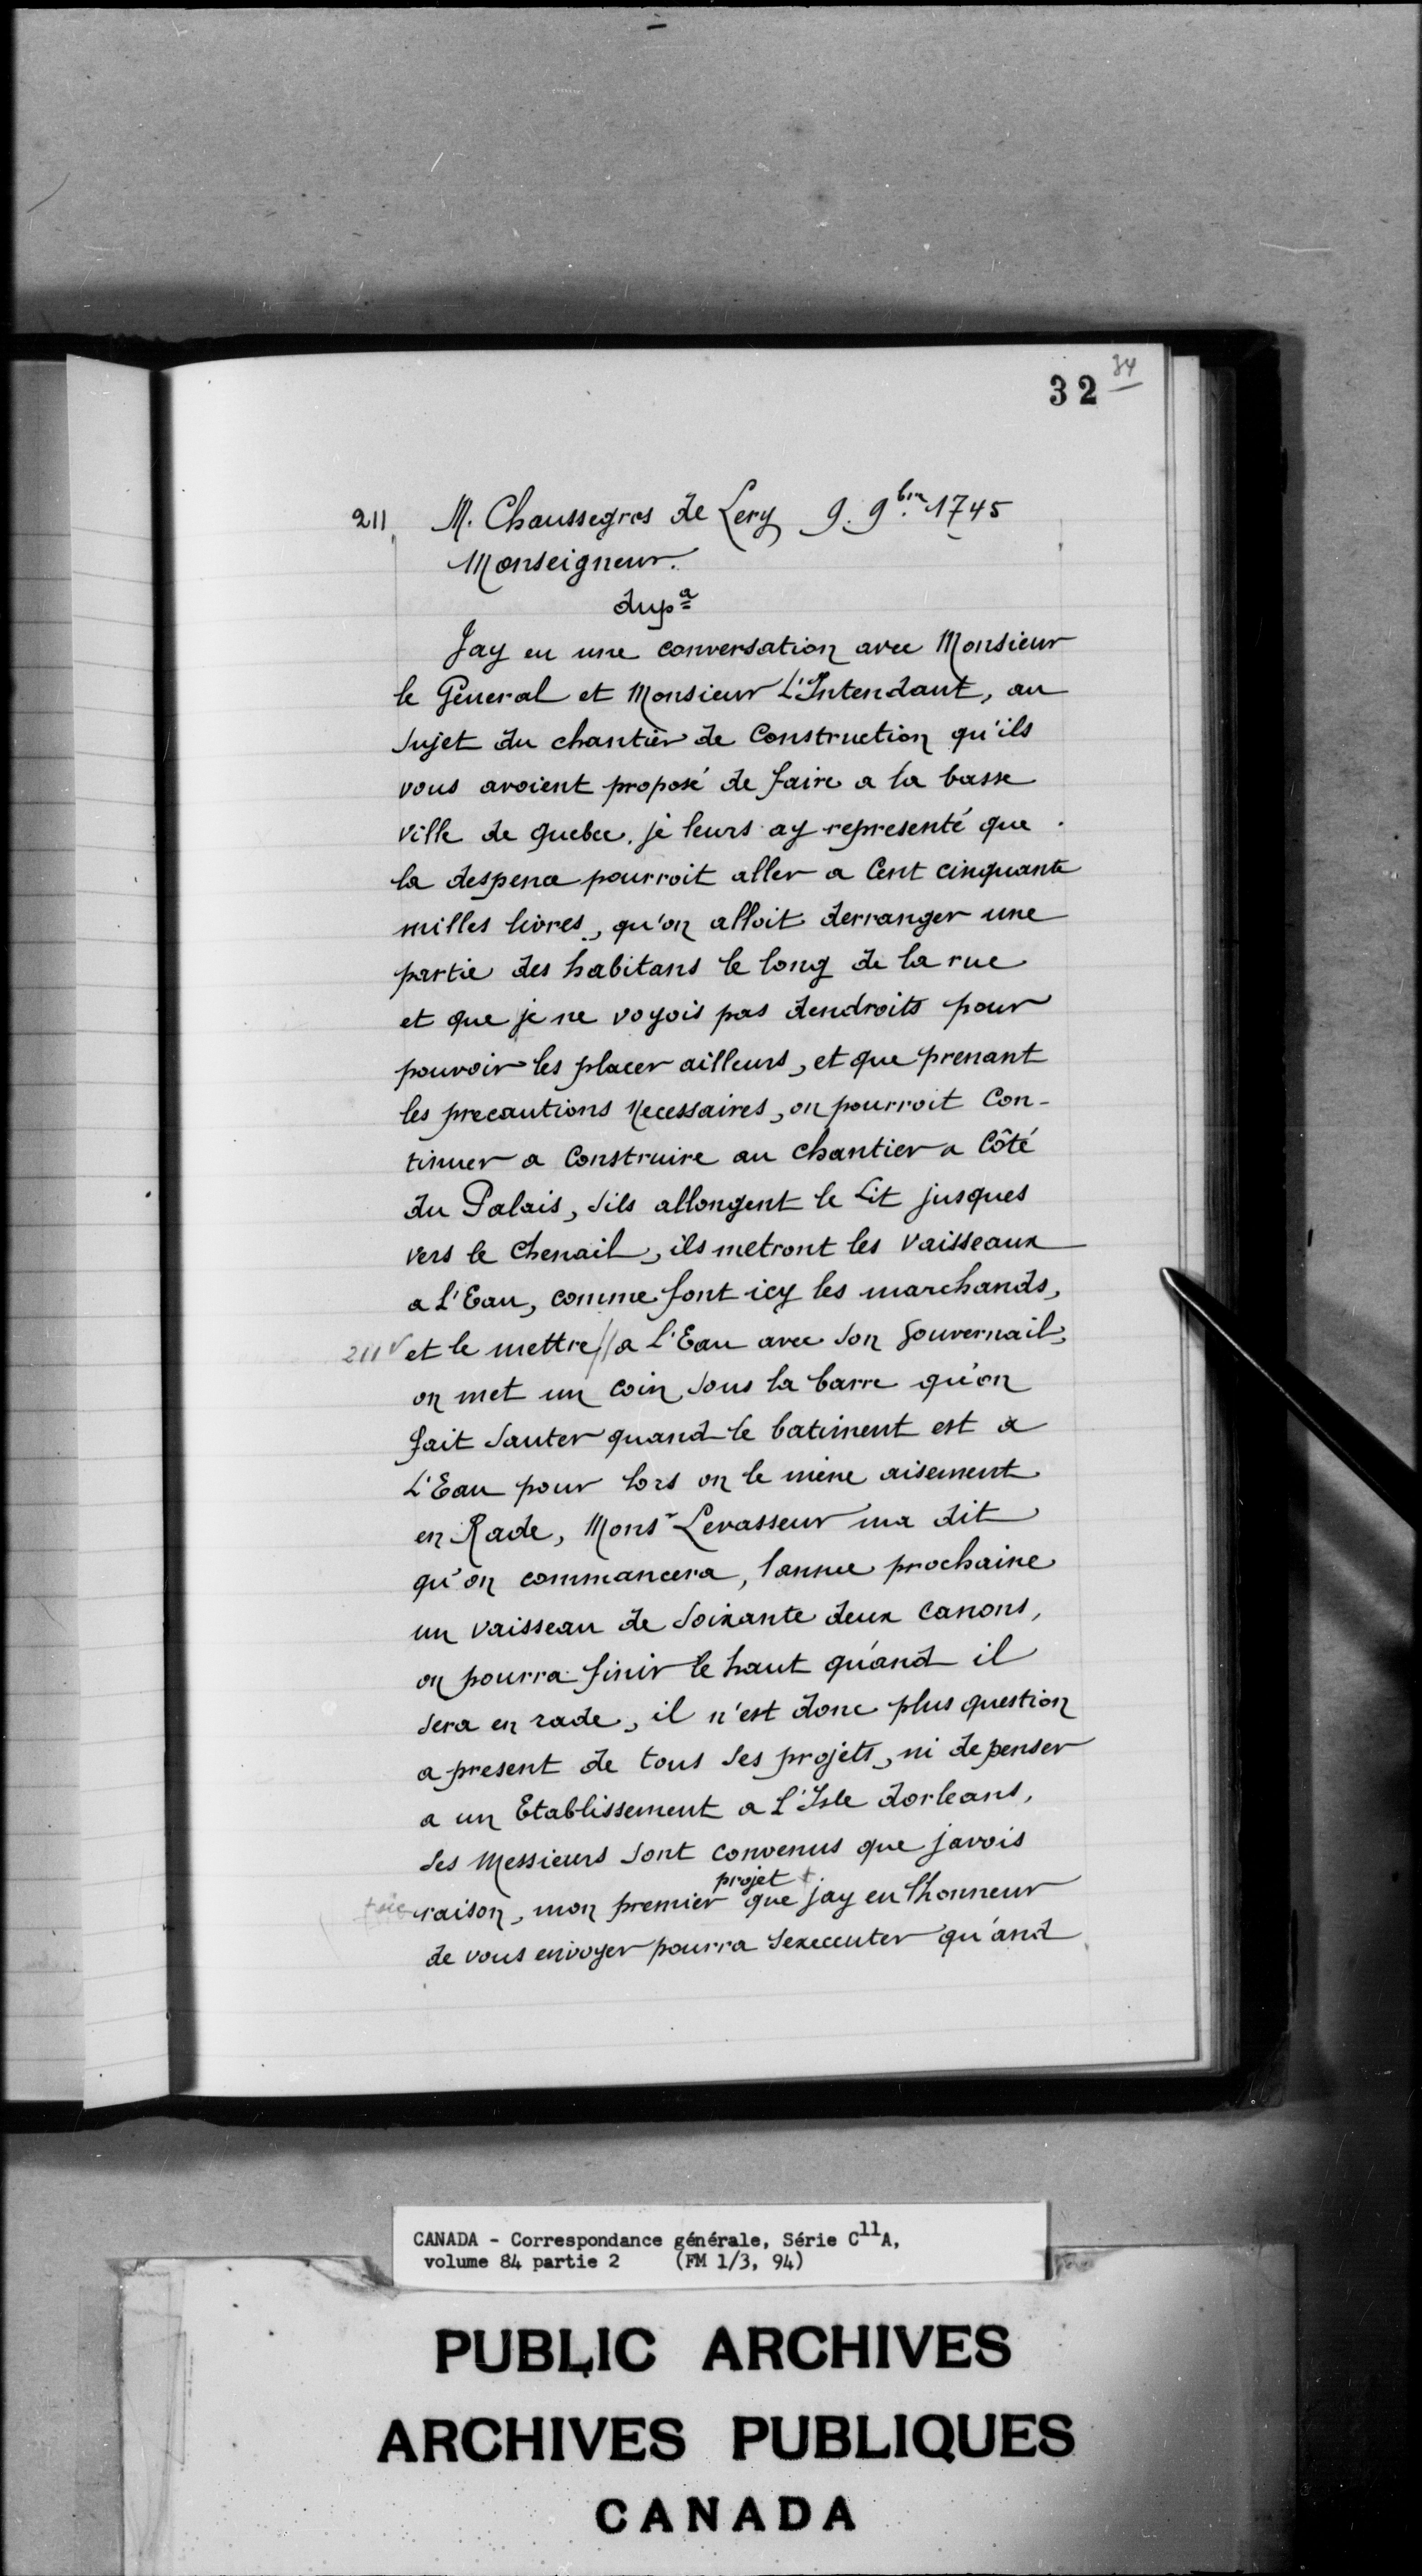 34
32
211 M. Chaussegros de Lery 9. 9bre 1745
Monseigneur.
dupa
Jay eu une conversation avec Monsieur
le Géneral et Monsieur L'Intendant, au
sujet du chantier de Construction qu'ils
vous avoient proposé de faire a la basse
ville de quebec. je leurs ay representé que
la despence pourroit aller a Cent cinquante
milles livres, qu'on alloit derranger une
partie des habitans le long de la rue
et que je ne voyois pas dendroits pour
pouvoir les placer ailleurs, et que prenant
les precautions Necessaires, on pourroit Con-
tinuer a Construire au chantier a Côté
du Palais, sils allongent le Lit jusques
vers le Chenail, ils metront les Vaisseaux
a L'Eau, comme font icy les marchands,
211v et le mettre // a L'Eau avec son Gouvernail,
on met un coin sous la barre qu'on
fait sauter quand le batiment est a
L'Eau pour lors on le mène aisement
en Rade, Monsr Levasseur ma dit
qu'on commancera, lannee prochaine
un vaisseau de soixante deux Canons,
on pourra finir le haut qu'and il
sera en rade, il n'est donc plus question
a present de tous ses projets, ni de penser
a un Etablissement a L'Isle dorleans,
ses Messieurs sont convenus que javois
projet +
+ sic raison, mon premier que jay eu lhonneur
de vous envoyer pourra sexecuter qu'and
CANADA - Correspondance générale, Série C11A,
volume 84 partie 2 (FM 1/3, 94)
PUBLIC ARCHIVES
ARCHIVES PUBLIQUES
CANADA